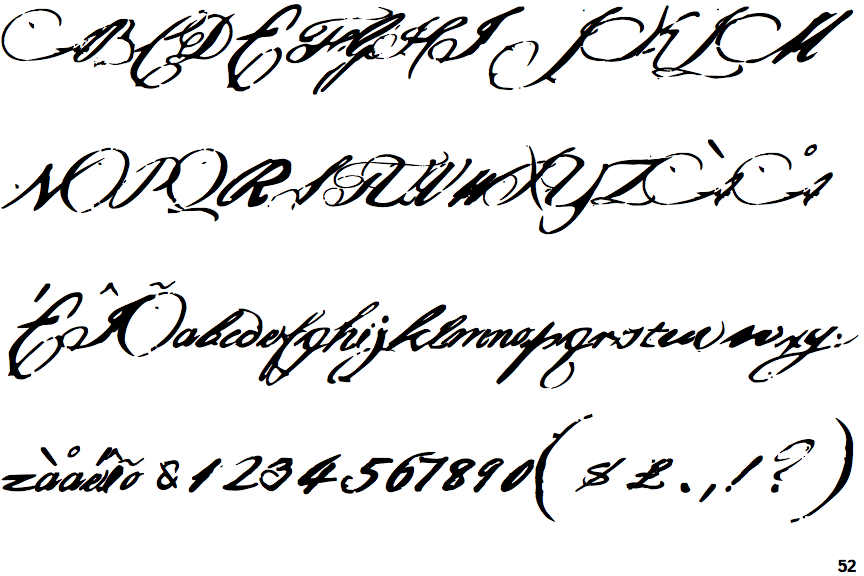 ABCDEFGHIJKLM
NOPQRSTUVWXYZÀÅ
ÉÎÕabcdefghijklmnopqrstuvwxy
zàåéîõ&1234567890($£.,!?)
52